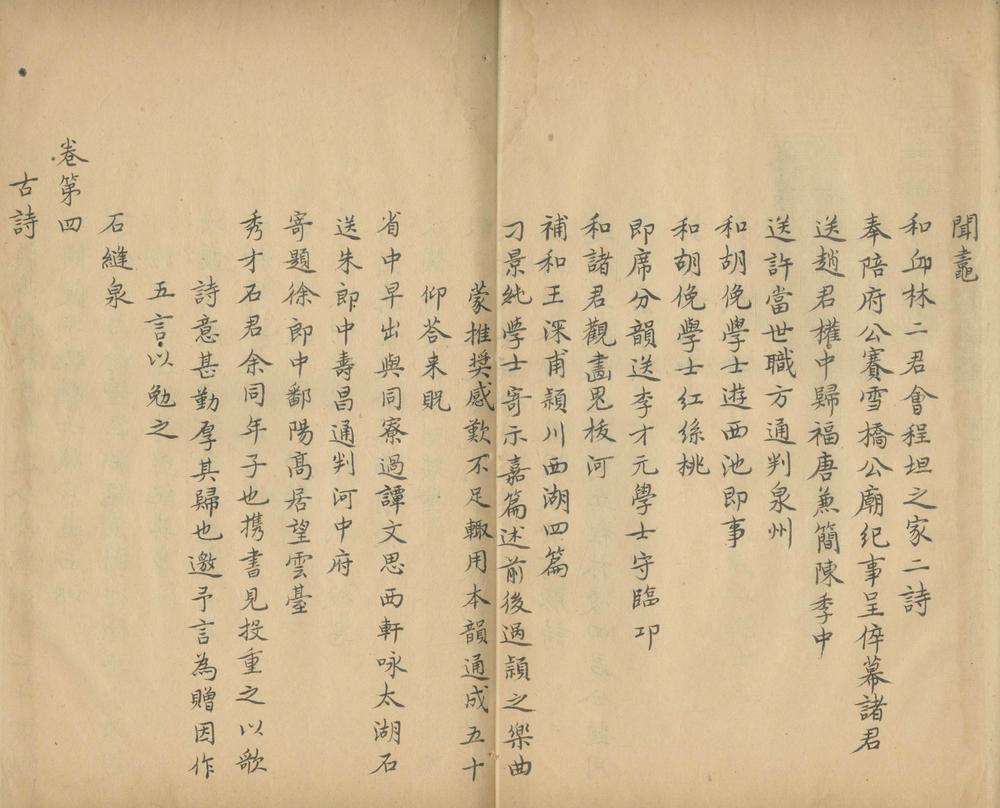 聞鼃
和丘林二君會程坦之家二詩
奉陪府公賽雪橋公廟紀事呈倅幕諸君
送趙君權中歸福唐兼簡陳季中
送許當世職方通判泉州
和胡俛學士遊西池即事
和胡俛學士紅絲桃
即席分韻送李才元學士守臨邛
和諸君觀畫鬼拔河
補和王深甫潁川西湖四篇
刁景純學士寄示嘉篇述前後過潁之樂曲
蒙推奬感歎不足輙用本韻通成五十
仰荅来貺
省中早出與同寮過譚文思西軒咏太湖石
送朱郎中壽昌通判河中府
寄題徐郎中鄱陽高居望雲臺
秀才石君余同年子也携書見投重之以歌
詩意甚勤厚其歸也邀予言為贈因作
五言以勉之
石縫泉
卷第四
古詩